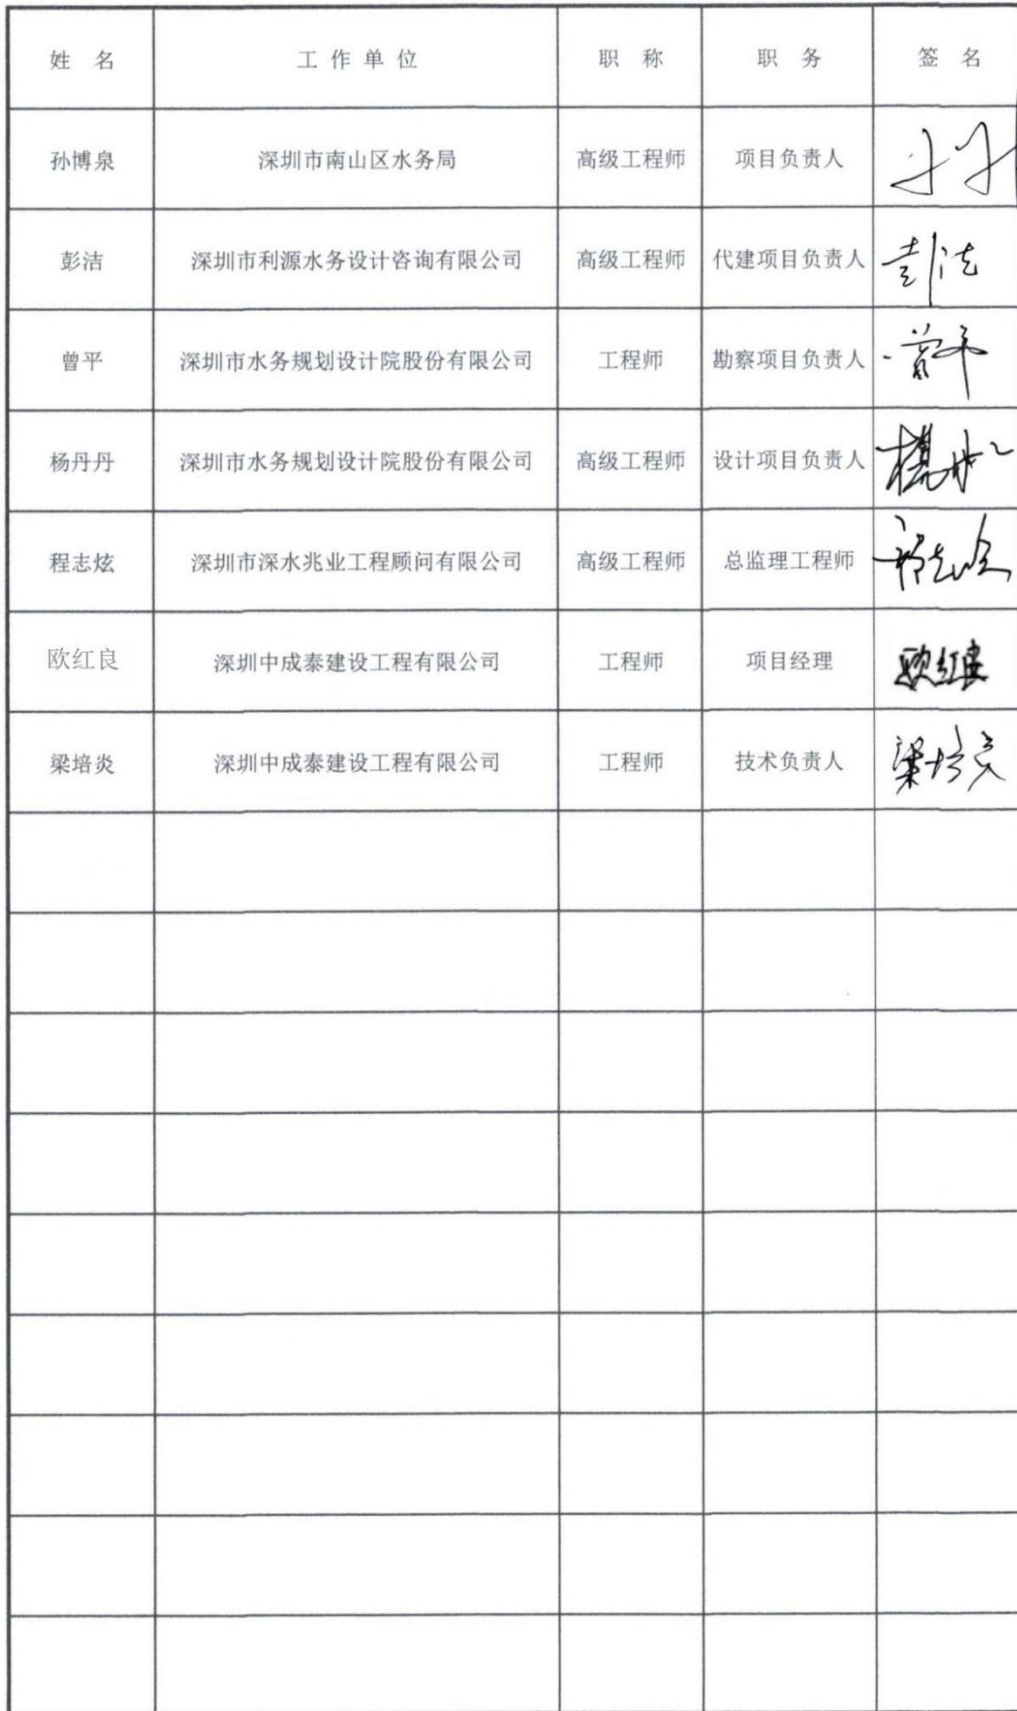 姓 名 工 作 单 位 职 称 职 务 签 名
孙博泉 深圳市南山区水务局 高级工程师 项目负责人
彭洁 深圳市利源水务设计咨询有限公司 高级工程师 代建项目负责人 彭洁
曾平 深圳市水务规划设计院股份有限公司 工程师 勘察项目负责人 曾平
杨丹丹 深圳市水务规划设计院股份有限公司 高级工程师 设计项目负责人
程志炫 深圳市深水兆业工程顾问有限公司 高级工程师 总监理工程师 程志炫
欧红良 深圳中成泰建设工程有限公司 工程师 项目经理 欧红良
梁培炎 深圳中成泰建设工程有限公司 工程师 技术负责人 梁培炎